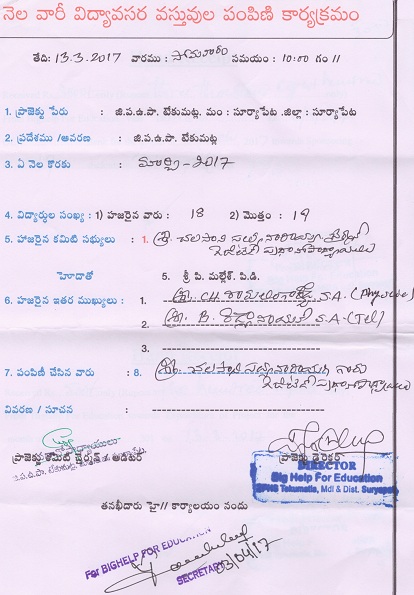 నెల వారీ విద్యావసర వస్తువుల పంపిణి కార్యక్రమం
తేది: 13.3.2017 వారము : సోమవారం సమయం : 10:00 గం //
1. ప్రాజెక్టు పేరు : జి.ప.ఉ.పా. టేకుమట్ల. మం : సూర్యాపేట .జిల్లా : సూర్యాపేట
2. ప్రదేశము /ఆవరణ : జి.ప.ఉ.పా. టేకుమట్ల
3. ఏ నెల కొరకు : మార్చి - 2017
4. విద్యార్థుల సంఖ్య : 1) హజరైన వారు : 18 2) మొత్తం : 19
5. హాజరైన కమిటి సభ్యులు : 1. శ్రీ చలసాని సత్యనారాయణ
హెదాతో 5. శ్రీ పి. మల్లేశ్. పి.డి.
6. హజరైన ఇతర ముఖ్యులు : 1. శ్రీ. CH. S.A.
2. శ్రీ. B. S.A - (Tel)
3.
7. పంపిణీ చేసిన వారు : 8. శ్రీ. చలసాని సత్యనారాయణ గారు
వివరణ / సూచన :
ప్రాజెక్టు కమిటి చైర్మన్ & ఆడిటర్ ప్రాజెక్టు డైరెక్టర్
జి.ప.ఉ.పా. టేకుమట్ల
DIRECTOR
Big Help For Education
ZPHS Tekumatla, Mdl & Dist. Suryapet
తనఖీదారు హై// కార్యాలయం నందు
For BIGHELP FOR EDUCATION
SECRETARY
03/04/17